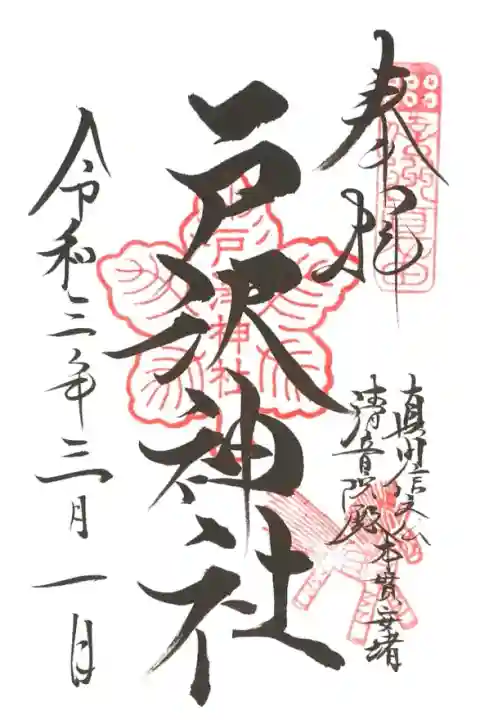 奉拝
信州真田
真田信之公
清音院殿本貫安堵
戸沢神社
戸沢神社
令和三年三月一日